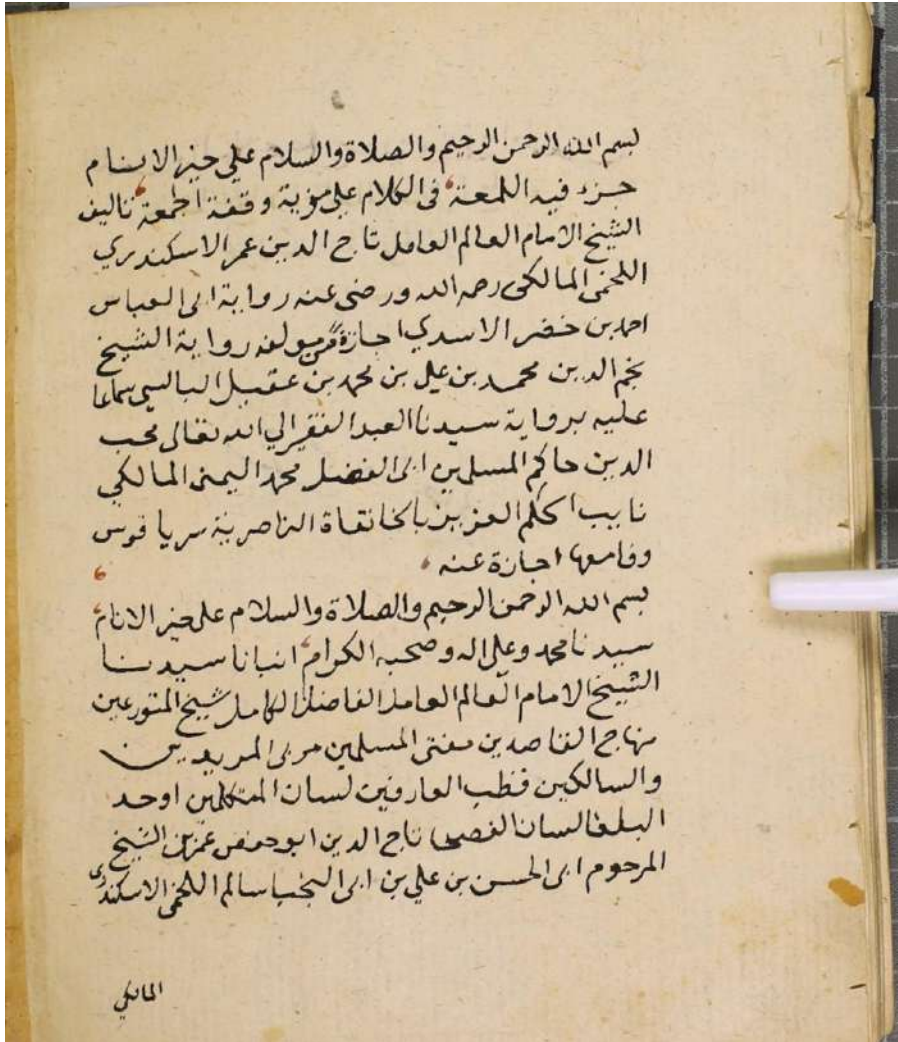 بسم الله الرحمن الرحيم والصلاة والسلام علي خير الانام
جزء فيه اللمعة في الكلام على مزية وقفة الجمعة تاليف
الشيخ الامام العالم العامل تاج الدين عمر الاسكندري
اللخمى المالكى رحمه الله ورضى عنه رواية ابى العباس
احمد بن خضر الاسدي اجازة من مولفه رواية الشيخ
نجم الدين محمد بن علي بن محمد بن عقيل البالسي سماعا
عليه برواية سيدنا العبد الفقير الي الله تعالى محب
الدين حاكم المسلمين ابى الفضل محمد اليمنى المالكي
نايب الحكم العزيز بالخانقاة الناصرية سرياقوس
اجازة عنه
بسم الله الرحمن الرحيم والصلاة والسلام على خير الانام
سيدنا محمد وعلى اله وصحبه الكرام انبانا سيدنا
الشيخ الامام العالم العامل الفاضل الكامل شيخ المتورعين
منهاج القاصدين مفتى المسلمين مربى المريدين
والسالكين قطب العارفين لسان المتكلمين اوحد
البلغا لسان الفصحا تاج الدين ابو حفص عمر بن الشيخ
المرحوم ابى الحسن بن علي بن ابى النجبا سالم اللخمى الاسكندرى
المالكي